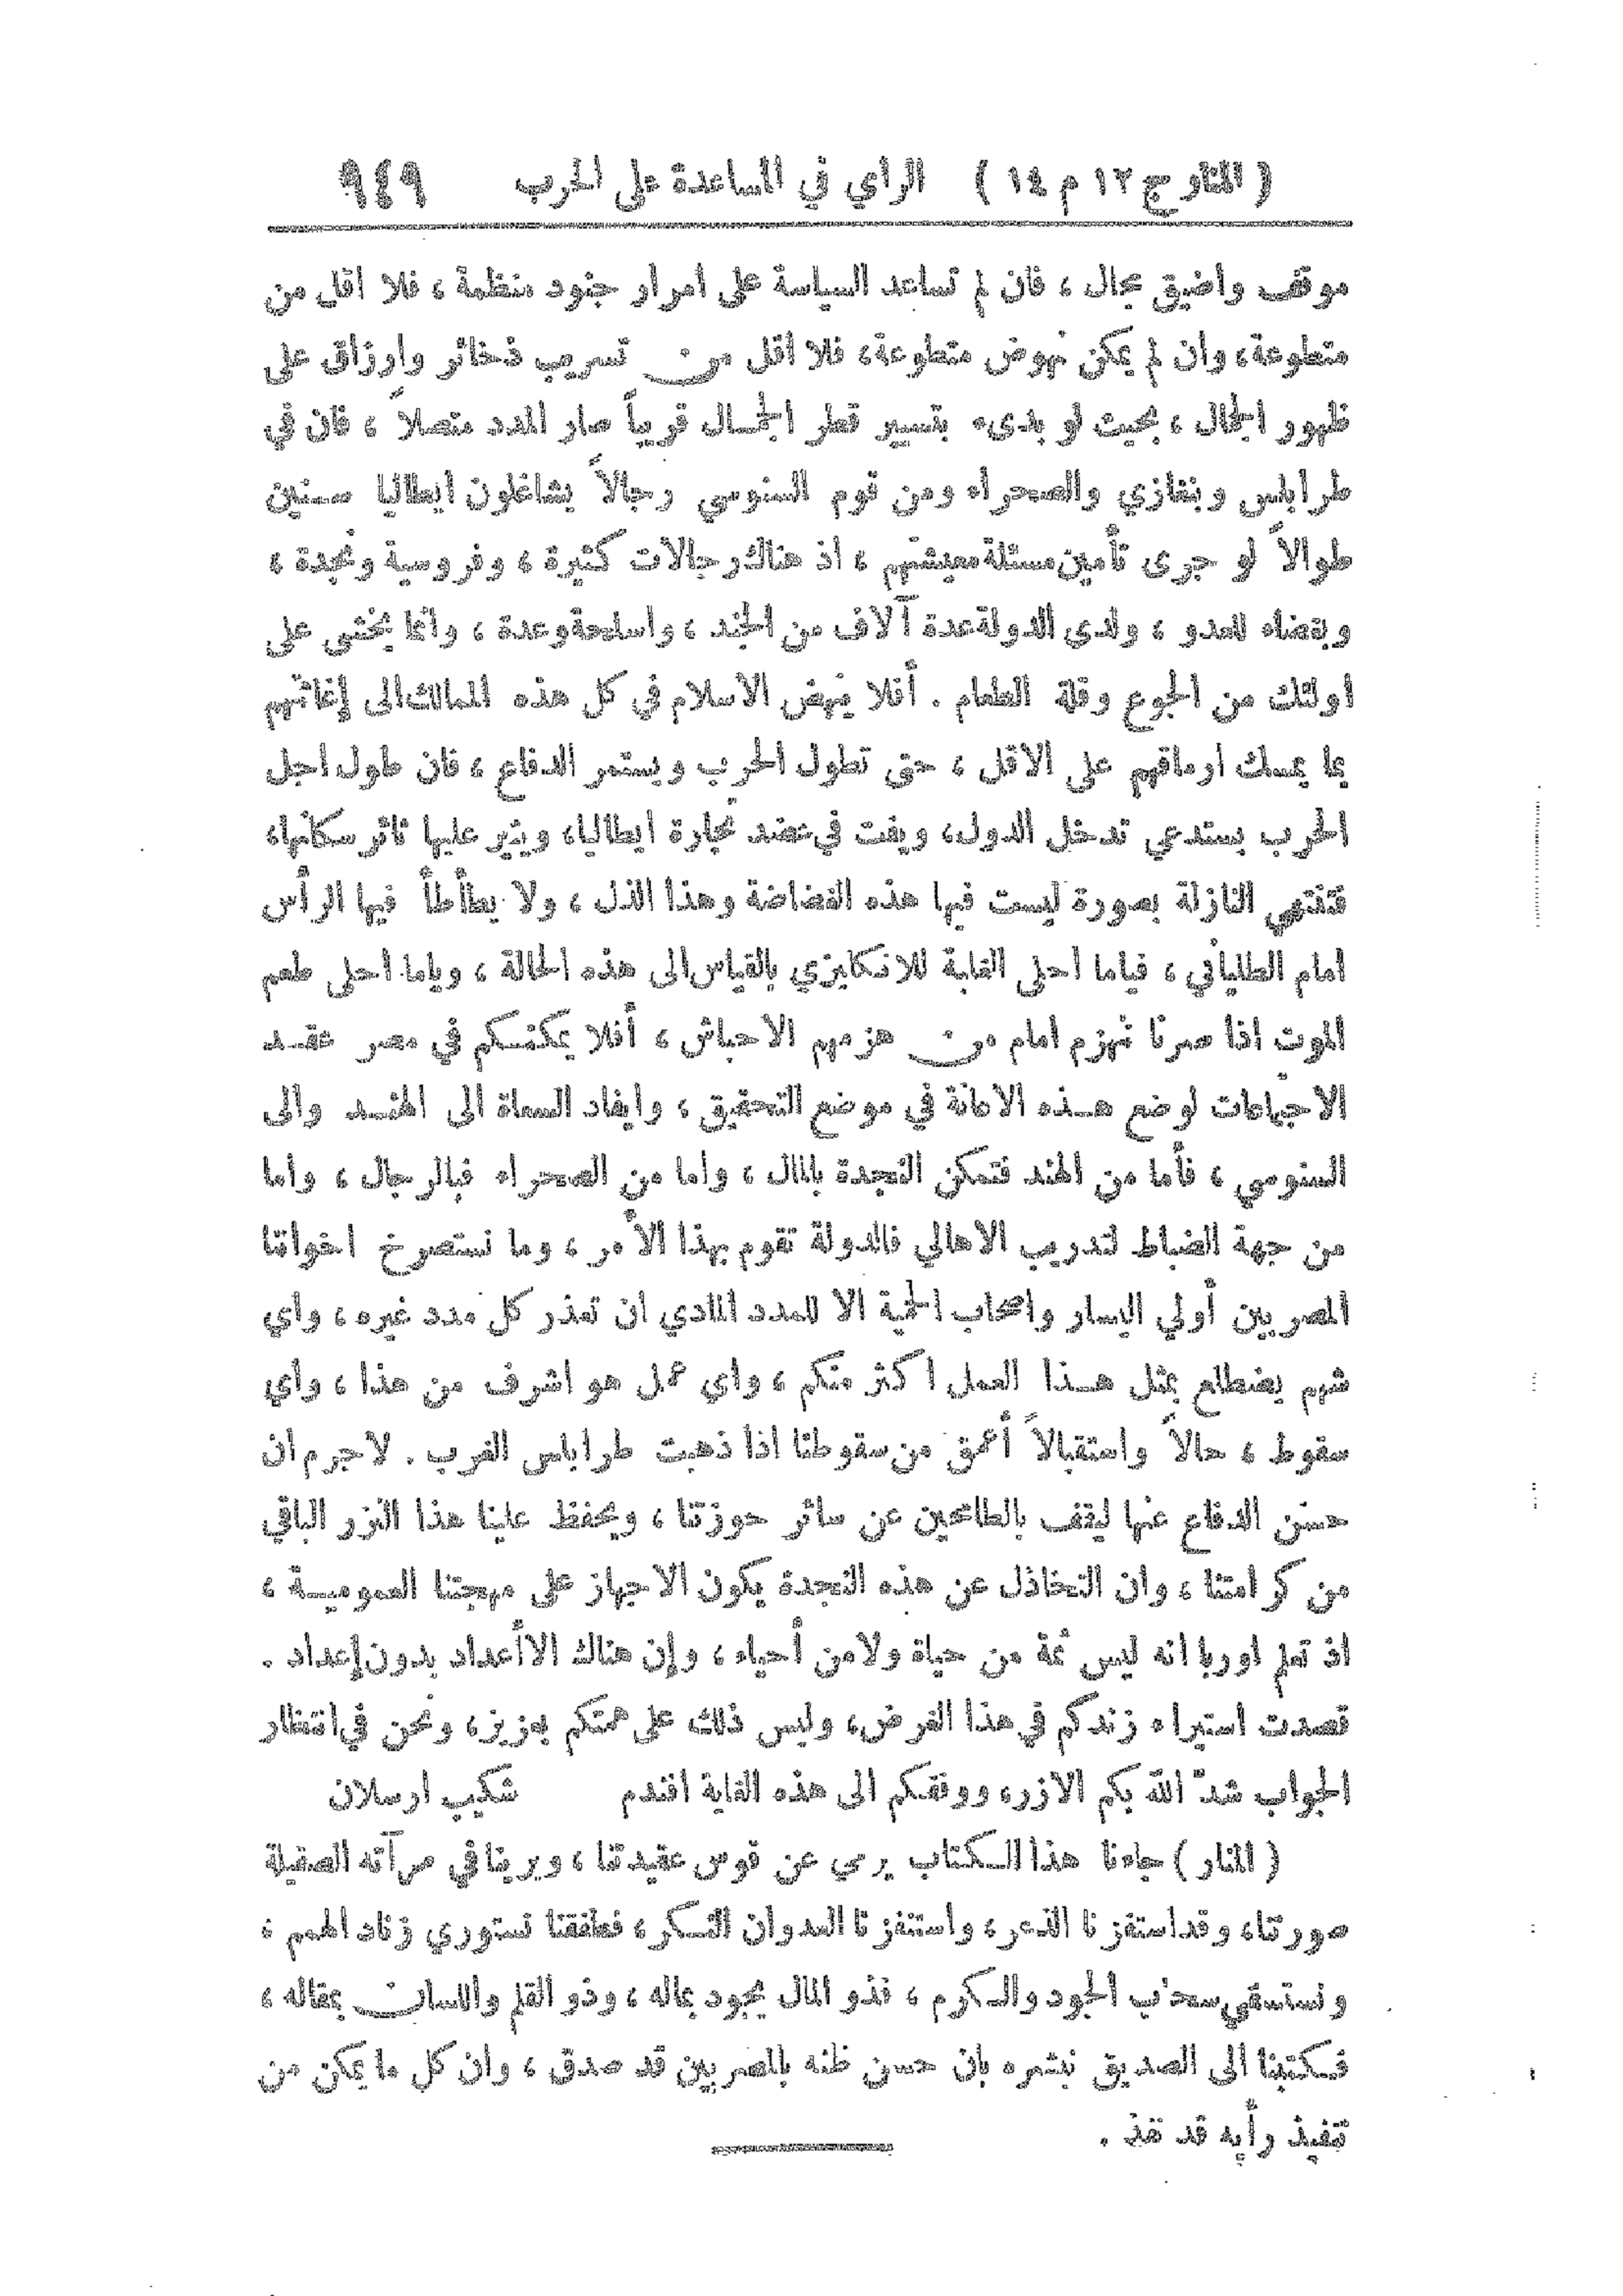 ( المنار ج ١٢ م ١٤ ) الراي في المساعدة على الحرب ٩٤٩
موقف واضيق مجال ، فان لم تساعد السياسة على امرار جنود منظمة ، فلا اقل من
متطوعة، وان لم يمكن نهوض متطوعة، فلا اقل من تسريب ذخائر وارزاق على
ظهور الجمال ، بحيث لو بدىء بتسيير قطر الجمال قريباً صار المدد متصلاً ، فان في
طرابلس وبنغازي والصحراء ومن قوم السنوسي رجالاً يشاغلون ايطاليا سنين
طوالاً لو جرى تأمين مسئلة معيشتهم ، اذ هناك رجالات كثيرة ، وفروسية ونجدة ،
وبغضاء للعدو ، ولدى الدولة عدة آلاف من الجند ، واسلحة وعدة ، وانما يخشى على
اولئك من الجوع وقلة الطعام . أفلا ينهض الاسلام في كل هذه الممالك الى إغاثتهم
بما يمسك ارماقهم على الاقل ، حتى تطول الحرب ويستمر الدفاع ، فان طول اجل
الحرب يستدعي تدخل الدول، ويفت في عضد تجارة ايطاليا، ويثير عليها ثائر سكانها،
فتنتهي النازلة بصورة ليست فيها هذه الغضاضة وهذا الذل ، ولا يطأطأ فيها الرأس
امام الطلياني ، فياما احلى الغلبة للانكليزي بالقياس الى هذه الحالة ، وياما احلى طعم
الموت اذا صرنا نهزم امام من هزمهم الاحباش ، أفلا يمكنكم في مصر عقد
الاجتماعات لوضع هذه الاعانة في موضع التحقيق ، وايفاد السعاة الى الهند والى
السنوسي ، فأما من الهند فتمكن النجدة بالمال ، واما من الصحراء فبالرجال ، واما
من جهة الضباط لتدريب الاهالي فالدولة تقوم بهذا الأمر ، وما نستصرخ اخواننا
المصريين أولي اليسار واصحاب الحمية الا للمدد المادي ان تعذر كل مدد غيره ، واي
شهم يضطلع بمثل هذا العمل اكثر منكم ، واي عمل هو اشرف من هذا ، واي
سقوط ، حالاً واستقبالاً أعمق من سقوطنا اذا ذهبت طرابلس الغرب . لا جرم ان
حسن الدفاع عنها ليقف بالطامحين عن سائر حوزتنا ، ويحفظ علينا هذا النزر الباقي
من كرامتنا ، وان التخاذل عن هذه النجدة يكون الاجهاز على مهجتنا العمومية ،
اذ تعلم اوربا انه ليس ثمة من حياة ولا من أحياء ، وإن هناك الا أعداد بدون إعداد .
قصدت استيراء زندكم في هذا الغرض، وليس ذلك على همتكم بعزيز، ونحن في انتظار
الجواب شدّ الله بكم الازر، ووفقكم الى هذه الغاية افندم شكيب ارسلان
( المنار ) جاءنا هذا الكتاب يرمي عن قوس عقيدتنا ، ويرينا في مرآته الصقيلة
صورتنا، وقد استفزنا الذعر، واستنفزنا العدوان النكر، فطفقنا نستوري زناد الهمم ،
ونستسقي سحب الجود والكرم ، فذو المال يجود بماله ، وذو القلم واللسان بمقاله ،
فكتبنا الى الصديق نبشره بان حسن ظنه بالمصريين قد صدق ، وان كل ما يمكن من
تنفيذ رأيه قد نفذ .